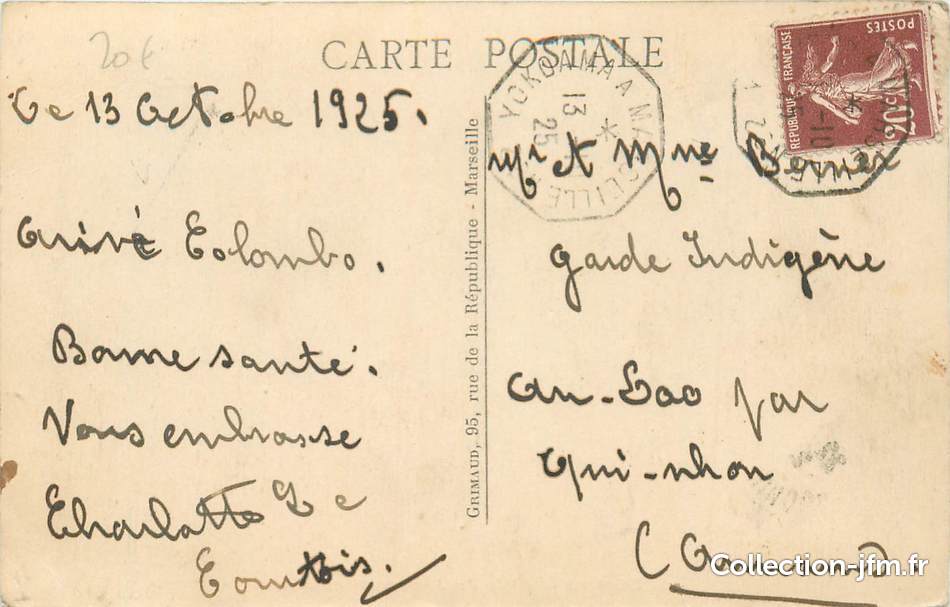 20€
CARTE POSTALE
Le 13 Octobre 1925.
Arrivé Colombo.
Bonne santé.
Vous embrasse
Charlotte Le
GRIMAUD, 95, rue de la République - Marseille
YOKOAMA A MARSEILLE
13
25
REPUBLIQUE FRANÇAISE
POSTES
20c
Mr & Mme Bernier
Garde Indigène
An-Lao par
Qui-nhon
(Annam)
Collection-jfm.fr